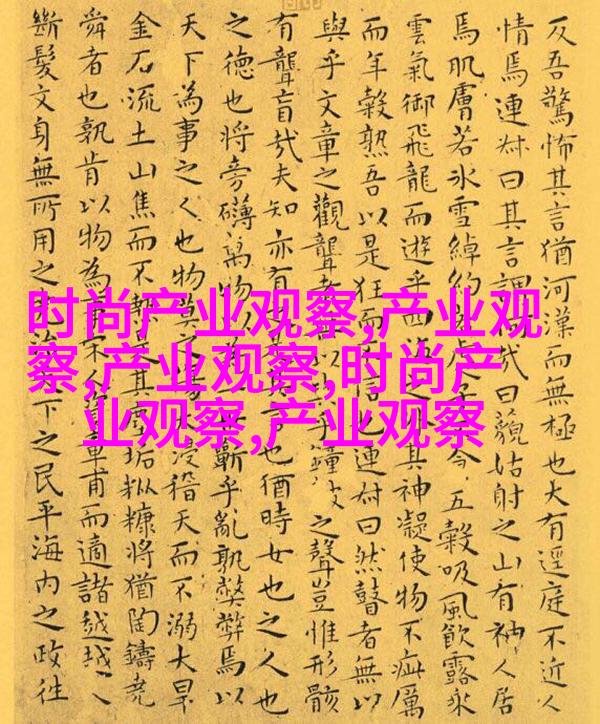 时尚产业观察,产业观
察,产业观察,时尚产
业观察,产业观察
反吾驚怖其言猶河漢而無極也大有逕庭不近人
情焉連叔曰其言謂哉曰藐姑射之山有神人居
焉肌膚若冰雪綽約子五穀吸風飲露乘
雲氣御飛龍而遊乎四海之其神凝使物不疵厲
而年穀熟吾以是狂而信也連叔曰然瞽者無以
與乎文章之觀聾者以乎鐘之聲豈惟形骸
有聾盲哉夫知亦有也猶時女也之人也
之德也將旁礴萬物以為蘄乎亂孰弊弊焉以
天下為事之人也物莫之浸稽天而不溺大旱
金石流土山焦而不熱是其垢粃糠將猶陶鑄堯
舜者也孰肯以物為人資章甫而適諸越越人
斷髮文身無所用之治下之民平海內之政往